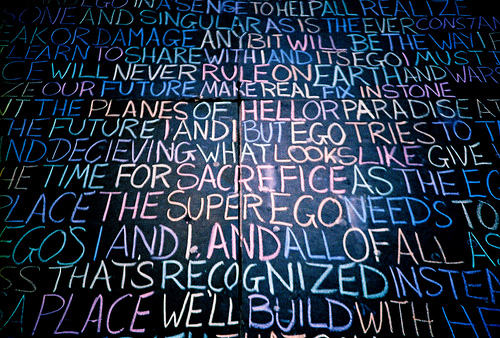 GO IN A SENSE TO HELP ALL REALIZE
ONE AND SINGULAR AS IS THE EVER CONSTA
EAK OR DAMAGE ANY BIT WILL BE THE WAY I
LEARN TO SHARE WITH I AND ITS EGO I MUS
CE WILL NEVER RULE ON EARTH AND WAR
ZE OUR FUTURE MAKE REAL FIX IN STONE
T THE PLANES OF HELL OR PARADISE A
THE FUTURE I AND I BUT EGO TRIES TO T
ND DECIEVING WHAT LOOKS LIKE GIVE
HE TIME FOR SACREFICE AS THE EG
PLACE THE SUPER EGO NEEDS TO
EGOS I AND I. AND ALL OF ALL AS
SS THATS RECOGNIZED INSTEA
A PLACE WE'LL BUILD WITH HE